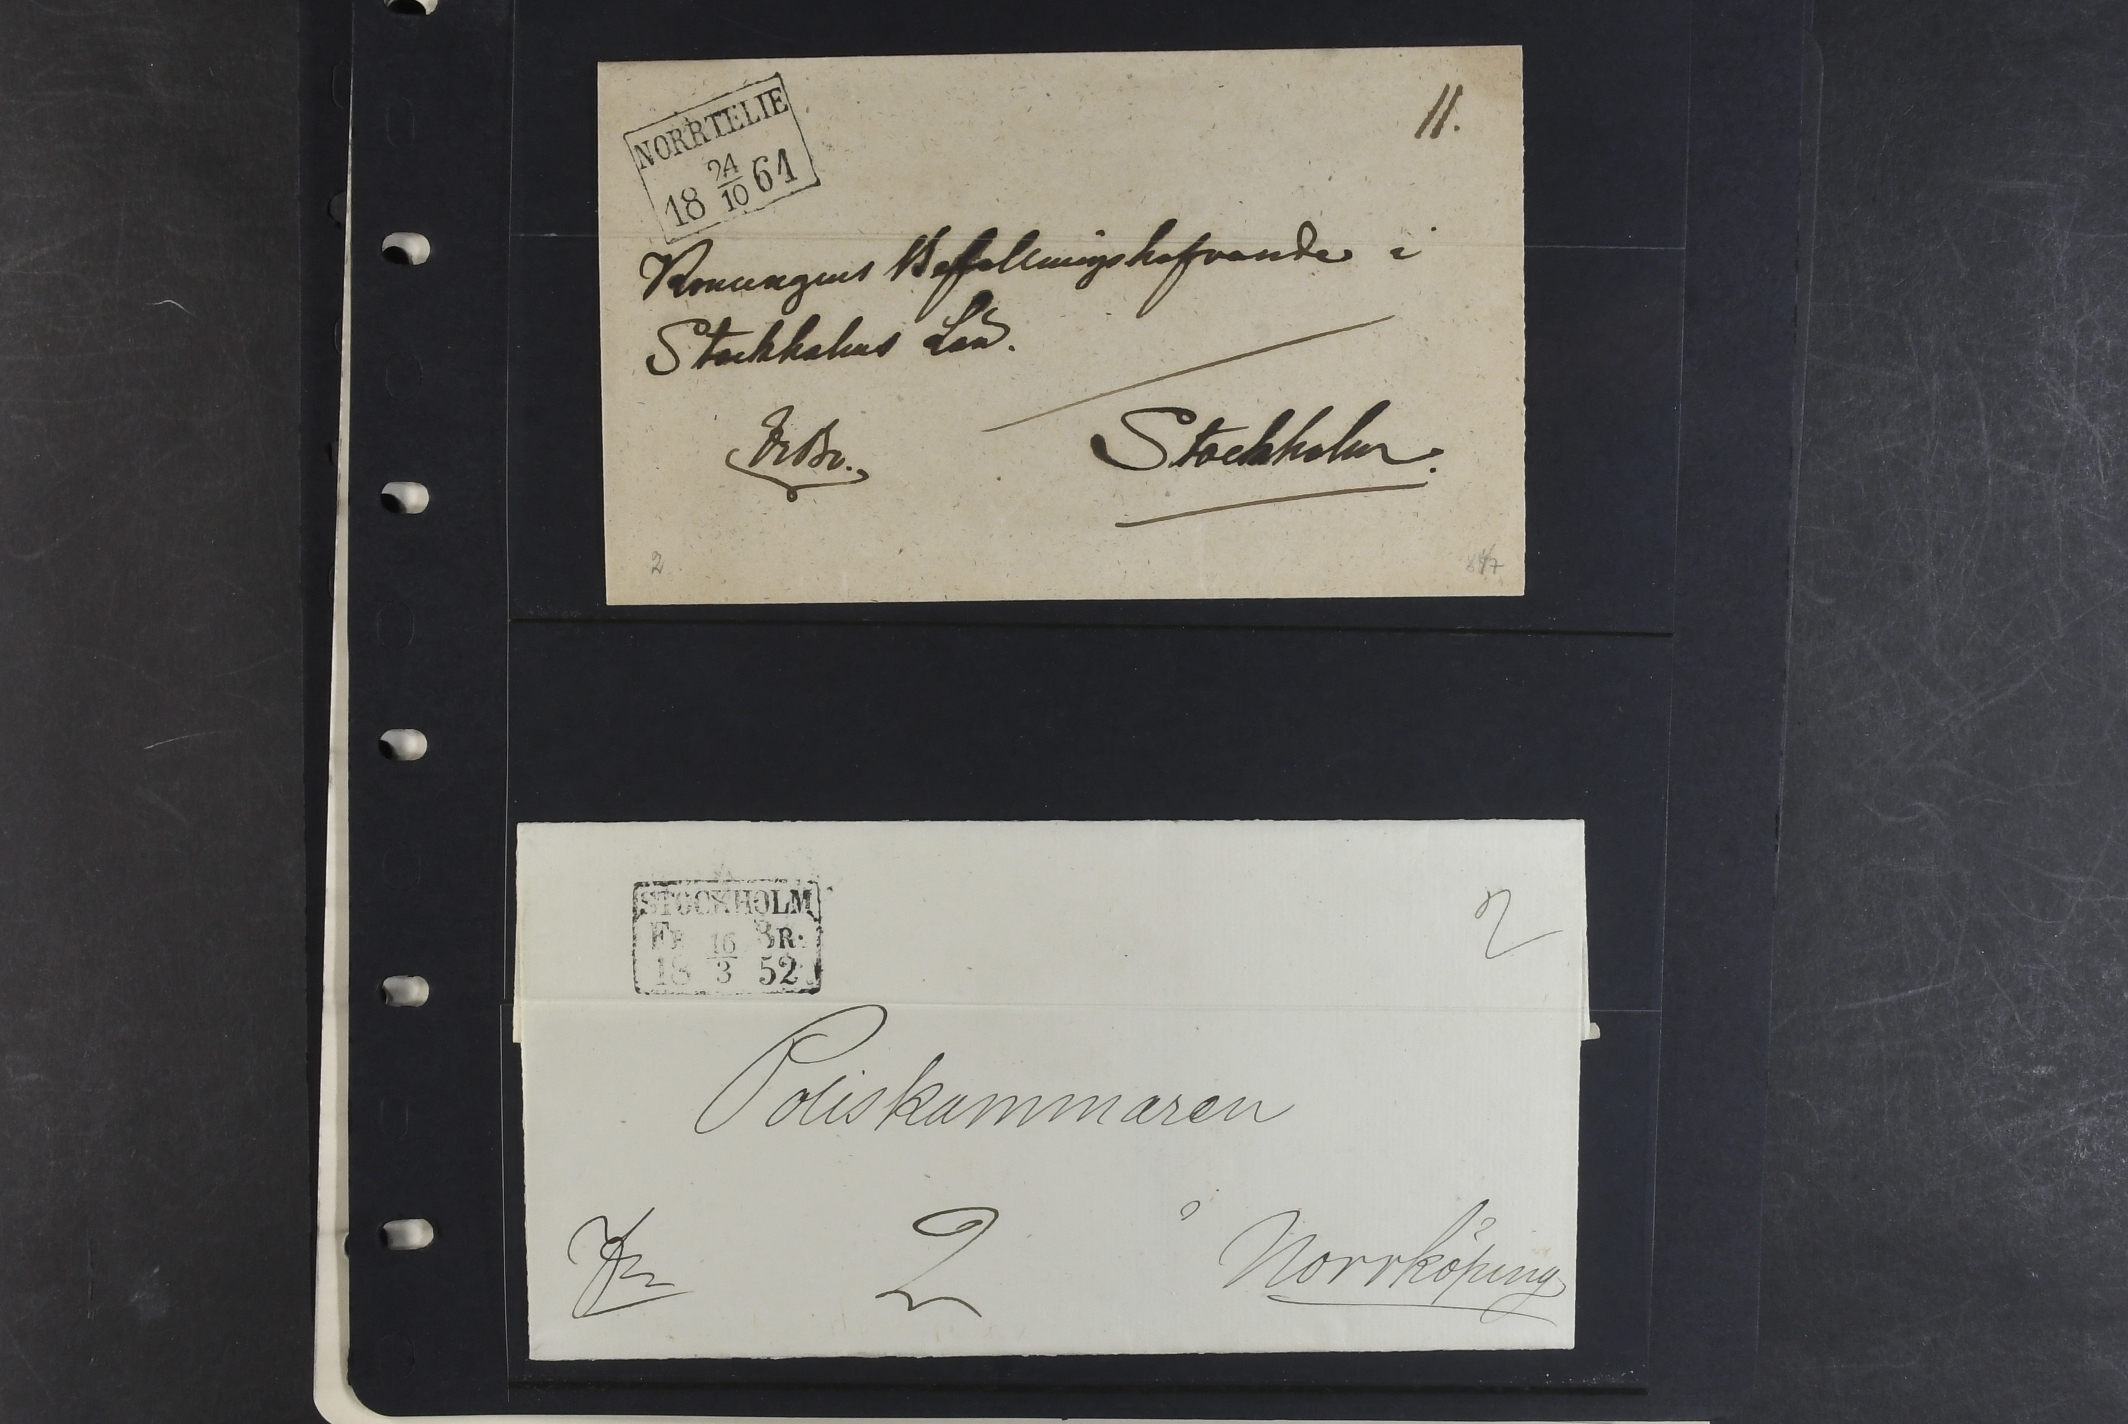 NORRTELIE
18 24/10 61
11.
Konungens Befallningshafvande i
Stockholms Län.
Stockholm.
2
STOCKHOLM
18 16/3 52
2
Poliskammaren
2
i Norrköping